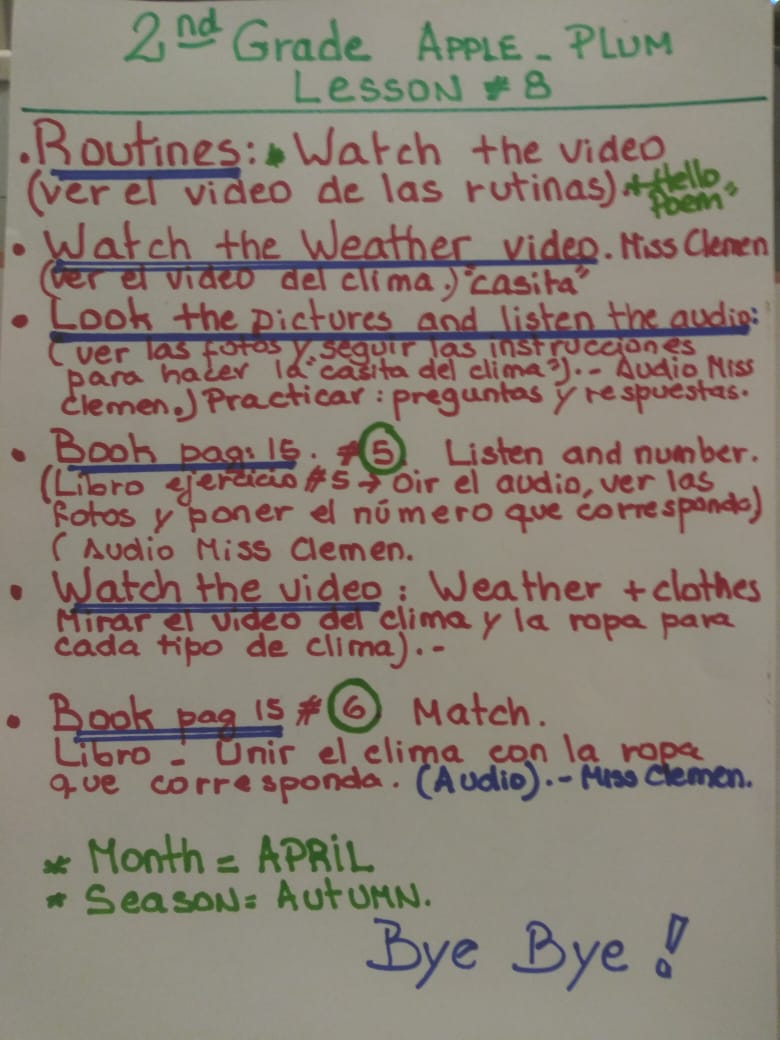 2nd Grade APPLE - PLUM
LESSON # 8
• Routines: • Watch the video
(ver el video de las rutinas). + "Hello
Poem"
• Watch the Weather video. Miss Clemen
(ver el video del clima.) "casita"
• Look the pictures and listen the audio:
(ver las fotos y seguir las instrucciones
para hacer la "casita del clima").- Audio Miss
Clemen.) Practicar: preguntas y respuestas.
• Book pag: 15. # 5 Listen and number.
(Libro ejercicio #5 → Oir el audio, ver las
fotos y poner el número que corresponda)
( Audio Miss Clemen.
• Watch the video: Weather + clothes
Mirar el video del clima y la ropa para
cada tipo de clima).-
• Book pag 15 # 6 Match.
Libro - Unir el clima con la ropa
que corresponda. (Audio).- Miss Clemen.
* Month = APRIL
* Season = AUTUMN.
Bye Bye!